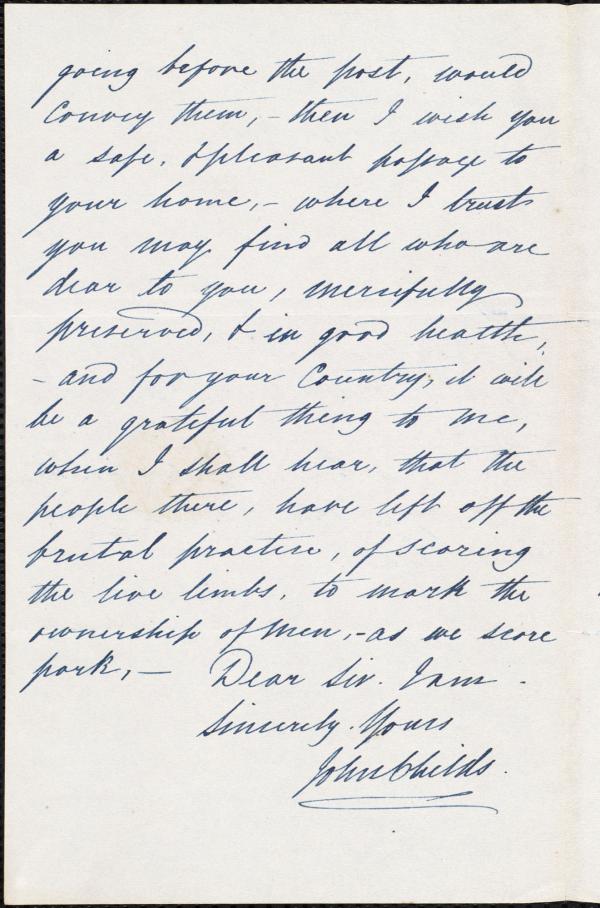 going before the post, would
convey them, - then I wish you
a safe, & pleasant passage to
your home, - where I trust
you may find all who are
dear to you, mercifully
preserved, & in good health,
- and for your Country, it will
be a grateful thing to me,
when I shall hear, that the
people there, have left off the
brutal practise, of scoring
the live limbs, to mark the
ownership of men, - as we score
pork, — Dear Sir. I am -
Sincerely. Yours
John Childs.